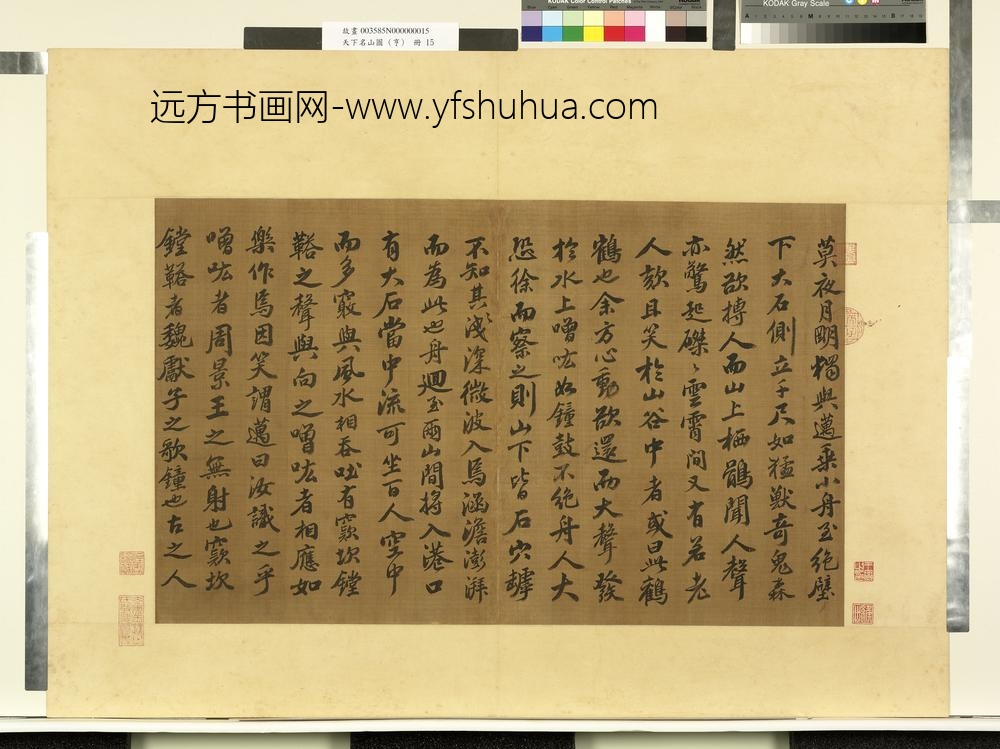 故畫 003585N000000015
天下名山圖（亨） 冊 15
KODAK Color Control Patches
KODAK Gray Scale
远方书画网-www.yfshuhua.com
莫夜月明獨與邁乘小舟至絶壁
下大石側立千尺如猛獸奇鬼森
然欲搏人而山上栖鶻聞人聲
亦驚起磔〻雲霄間又有若老
人欬且笑於山谷中者或曰此鶴
鶴也余方心動欲還而大聲發
於水上噌吰如鐘鼓不絶舟人大
恐徐而察之則山下皆石穴罅
不知其淺深微波入焉涵澹澎湃
而為此也舟迴至兩山間將入港口
有大石當中流可坐百人空中
而多竅與風水相吞吐有窾坎鏜
鞳之聲與向之噌吰者相應如
樂作焉因笑謂邁曰汝識之乎
噌吰者周景王之無射也窾坎
鏜鞳者魏獻子之歌鐘也古之人